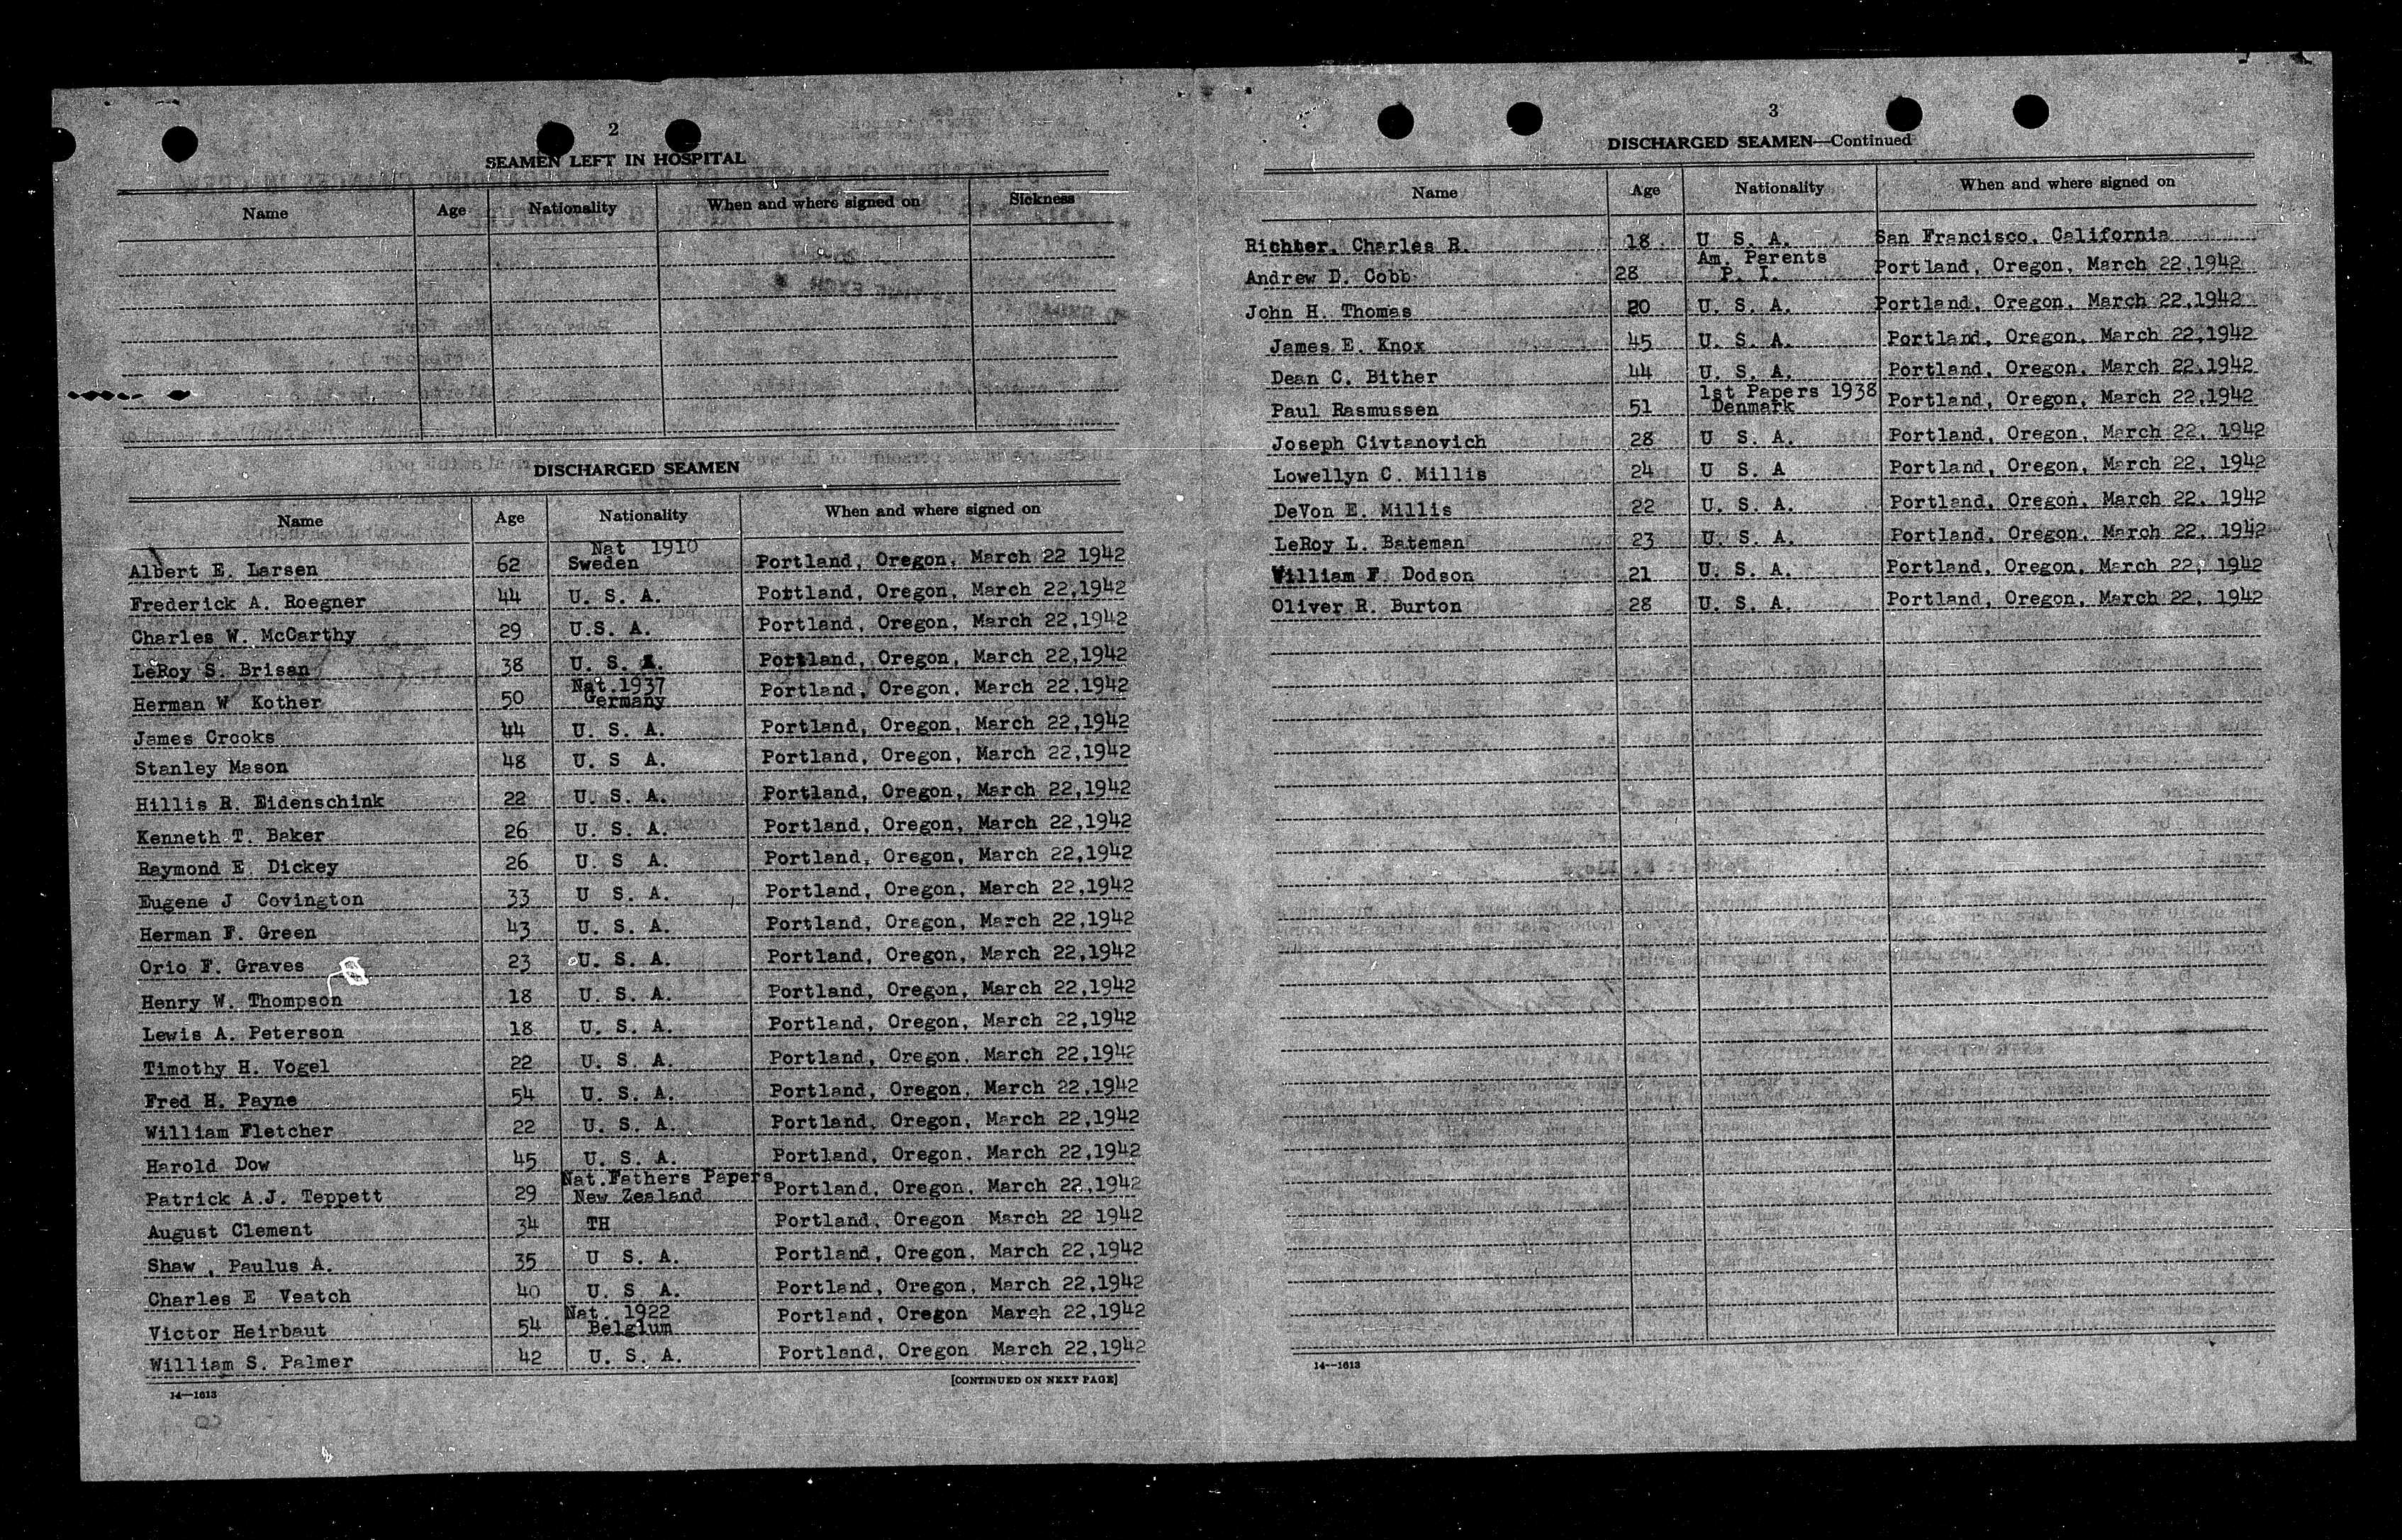 2
SEAMEN LEFT IN HOSPITAL
Name Age Nationality When and where signed on Sickness
DISCHARGED SEAMEN
Name Age Nationality When and where signed on
Nat 1910
Albert E. Larsen 62 Sweden Portland, Oregon, March 22 1942
Frederick A. Roegner 44 U. S. A. Portland, Oregon, March 22,1942
Charles W. McCarthy 29 U.S. A. Portland, Oregon, March 22,1942
LeRoy S. Brisan 38 U. S. A. Portland, Oregon, March 22,1942
Nat.1937
Herman W Kother 50 Germany Portland, Oregon, March 22,1942
James Crooks 44 U. S. A. Portland, Oregon, March 22,1942
Stanley Mason 48 U. S A. Portland, Oregon, March 22,1942
Hillis R. Eidenschink 22 U. S. A. Portland, Oregon, March 22,1942
Kenneth T. Baker 26 U. S. A. Portland, Oregon, March 22,1942
Raymond E. Dickey 26 U. S A. Portland, Oregon, March 22,1942
Eugene J Covington 33 U S. A. Portland, Oregon, March 22,1942
Herman F. Green 43 U. S. A. Portland, Oregon, March 22,1942
Orio F. Graves 23 U. S. A. Portland, Oregon, March 22,1942
Henry W. Thompson 18 U. S. A. Portland, Oregon, March 22,1942
Lewis A. Peterson 18 U. S. A. Portland, Oregon, March 22,1942
Timothy H. Vogel 22 U. S. A. Portland, Oregon, March 22,1942
Fred H. Payne 54 U. S. A. Portland, Oregon, March 22,1942
William Fletcher 22 U. S. A. Portland, Oregon, March 22,1942
Harold Dow 45 U. S. A. Portland, Oregon, March 22,1942
Nat.Fathers Papers
Patrick A.J. Teppett 29 New Zealand Portland, Oregon, March 22,1942
August Clement 34 TH Portland, Oregon March 22 1942
Shaw , Paulus A. 35 U S. A. Portland, Oregon, March 22,1942
Charles E Veatch 40 U. S A. Portland, Oregon, March 22,1942
Nat. 1922
Victor Heirbaut 54 Belgium Portland, Oregon March 22,1942
William S. Palmer 42 U. S. A. Portland, Oregon March 22,1942
14—1613
[CONTINUED ON NEXT PAGE]
3
DISCHARGED SEAMEN—Continued
Name Age Nationality When and where signed on
Richter, Charles R. 18 U S. A. San Francisco, California
Am. Parents
Andrew D. Cobb 28 P. I. Portland, Oregon, March 22,1942
John H. Thomas 20 U. S. A. Portland, Oregon, March 22,1942
James E. Knox 45 U. S. A. Portland, Oregon, March 22,1942
Dean C. Bither 44 U. S. A. Portland, Oregon, March 22,1942
1st Papers 1938
Paul Rasmussen 51 Denmark Portland, Oregon, March 22,1942
Joseph Civtanovich 28 U S. A. Portland, Oregon, March 22, 1942
Lowellyn C. Millis 24 U S. A Portland, Oregon, March 22, 1942
DeVon E. Millis 22 U. S. A. Portland, Oregon, March 22, 1942
LeRoy L. Bateman 23 U. S. A. Portland, Oregon, March 22, 1942
William F. Dodson 21 U. S. A. Portland, Oregon, March 22, 1942
Oliver R. Burton 28 U. S. A. Portland, Oregon, March 22, 1942
14—1613